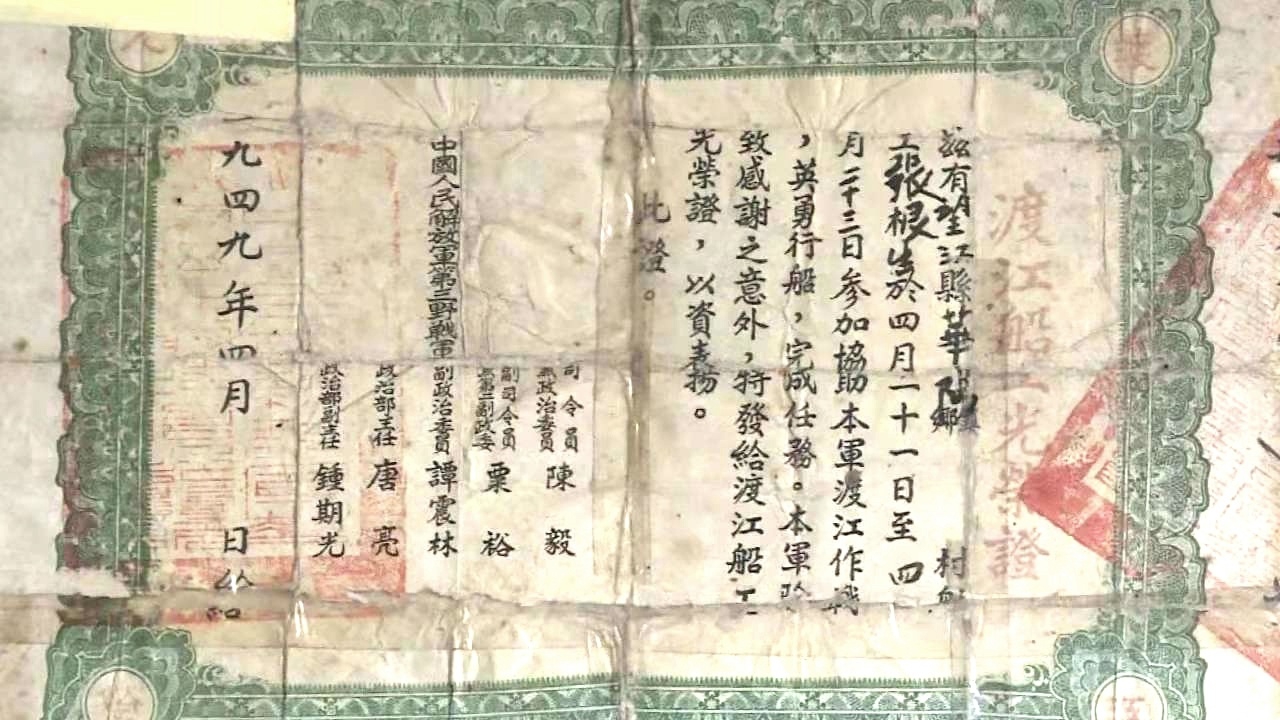 渡江船工光榮證
茲有望江縣華陽鄉鎮 村船
工張根生於四月二十一日至四
月二十三日參加協助本軍渡江作戰
，英勇行船，完成任務。本軍除
致感謝之意外，特發給渡江船工
光榮證，以資表揚。
此證。
中國人民解放軍第三野戰軍
司令員兼政治委員 陳毅
副司令員兼第二副政委 粟裕
副政治委員 譚震林
政治部主任 唐亮
政治部副主任 鍾期光
一九四九年四月 日給